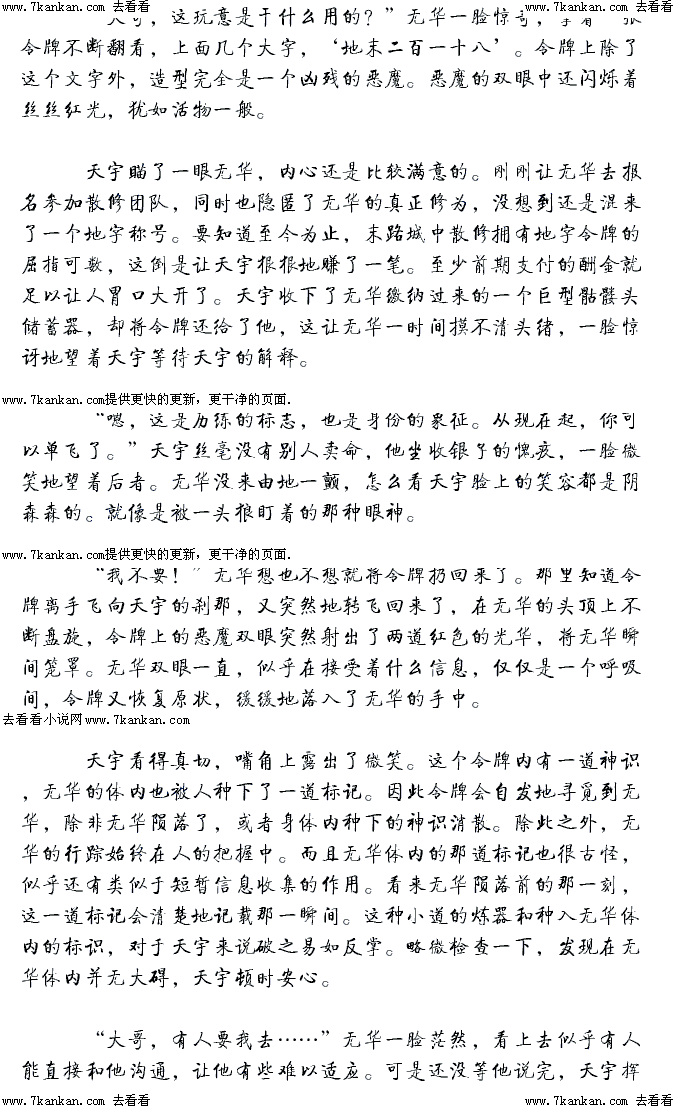 www.7kankan.com 去看看 www.7kankan.com 去看看 www.7kankan.com 去看看
，这玩意是干什么用的？”无华一脸惊奇，拿着
令牌不断翻看，上面几个大字，‘地末二百一十八’。令牌上除了
这个文字外，造型完全是一个凶残的恶魔。恶魔的双眼中还闪烁着
丝丝红光，犹如活物一般。
天宇瞄了一眼无华，内心还是比较满意的。刚刚让无华去报
名参加散修团队，同时也隐匿了无华的真正修为，没想到还是混来
了一个地字称号。要知道至今为止，末路城中散修拥有地字令牌的
屈指可数，这倒是让天宇狠狠地赚了一笔。至少前期支付的酬金就
足以让人胃口大开了。天宇收下了无华缴纳过来的一个巨型骷髅头
储蓄器，却将令牌还给了他，这让无华一时间摸不清头绪，一脸惊
讶地望着天宇等待天宇的解释。
www.7kankan.com提供更快的更新，更干净的页面.
“嗯，这是历练的标志，也是身份的象征。从现在起，你可
以单飞了。”天宇丝毫没有别人卖命，他坐收银子的愧疚，一脸微
笑地望着后者。无华没来由地一颤，怎么看天宇脸上的笑容都是阴
森森的。就像是被一头狼盯着的那种眼神。
www.7kankan.com提供更快的更新，更干净的页面.
“我不要！”无华想也不想就将令牌扔回来了。那里知道令
牌离手飞向天宇的刹那，又突然地转飞回来了，在无华的头顶上不
断盘旋，令牌上的恶魔双眼突然射出了两道红色的光华，将无华瞬
间笼罩。无华双眼一直，似乎在接受着什么信息，仅仅是一个呼吸
间，令牌又恢复原状，缓缓地落入了无华的手中。
去看看小说网www.7kankan.com
天宇看得真切，嘴角上露出了微笑。这个令牌内有一道神识
，无华的体内也被人种下了一道标记。因此令牌会自发地寻觅到无
华，除非无华陨落了，或者身体内种下的神识消散。除此之外，无
华的行踪始终在人的把握中。而且无华体内的那道标记也很古怪，
似乎还有类似于短暂信息收集的作用。看来无华陨落前的那一刻，
这一道标记会清楚地记载那一瞬间。这种小道的炼器和种入无华体
内的标识，对于天宇来说破之易如反掌。略微检查一下，发现在无
华体内并无大碍，天宇顿时安心。
“大哥，有人要我去……”无华一脸茫然，看上去似乎有人
能直接和他沟通，让他有些难以适应。可是还没等他说完，天宇挥
www.7kankan.com 去看看 www.7kankan.com 去看看 www.7kankan.com 去看看